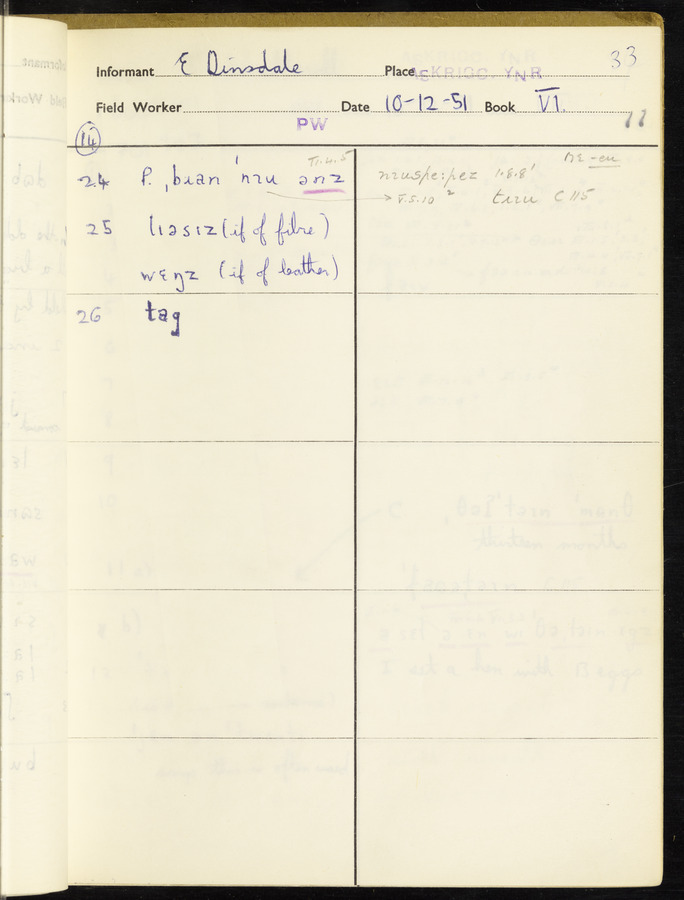 33
Informant E Dinsdale Place ASKRIGG. YNR
Field Worker Date 10-12-51 Book VI.
PW 11
14
24 P. ˌbɹan ˈnɪu ənz VI.4.5
nɪuspeːpez 1.8.8'
→ V.5.10 ² tɪɪu C 115
25 lɪəsɪz (if of fibre)
wɛŋz (if of leather)
26 tag